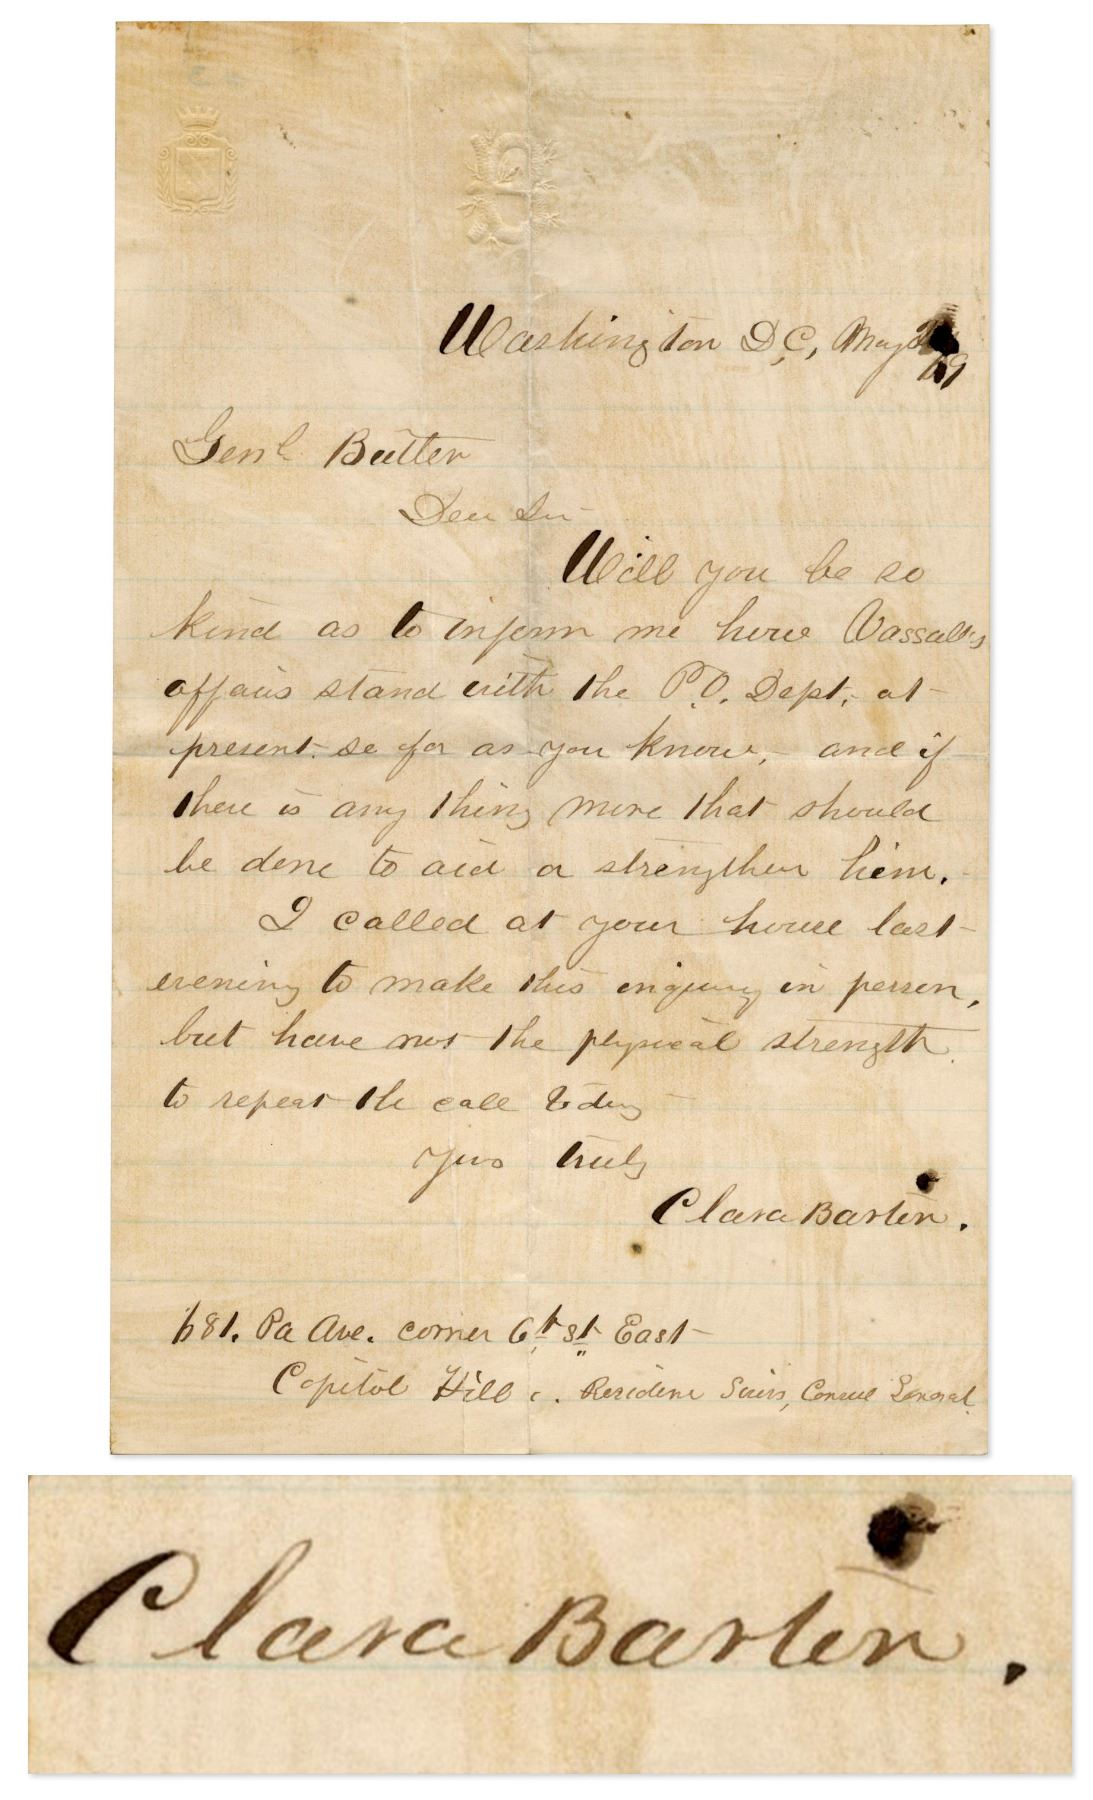 Washington D.C, May
69
Genl Butler
Dear Sir
Will you be so
kind as to inform me how Vassall's
affairs stand with the P.O. Dept, at
present so far as you know, and if
there is any thing more that should
be done to aid or strengthen him.
I called at your house last
evening to make this inquiry in person,
but have not the physical strength
to repeat the call today
Yours truly
Clara Barton.
681. Pa Ave. corner 6th st East
Capitol Hill Residence Swiss, Consul General.
Clara Barton.